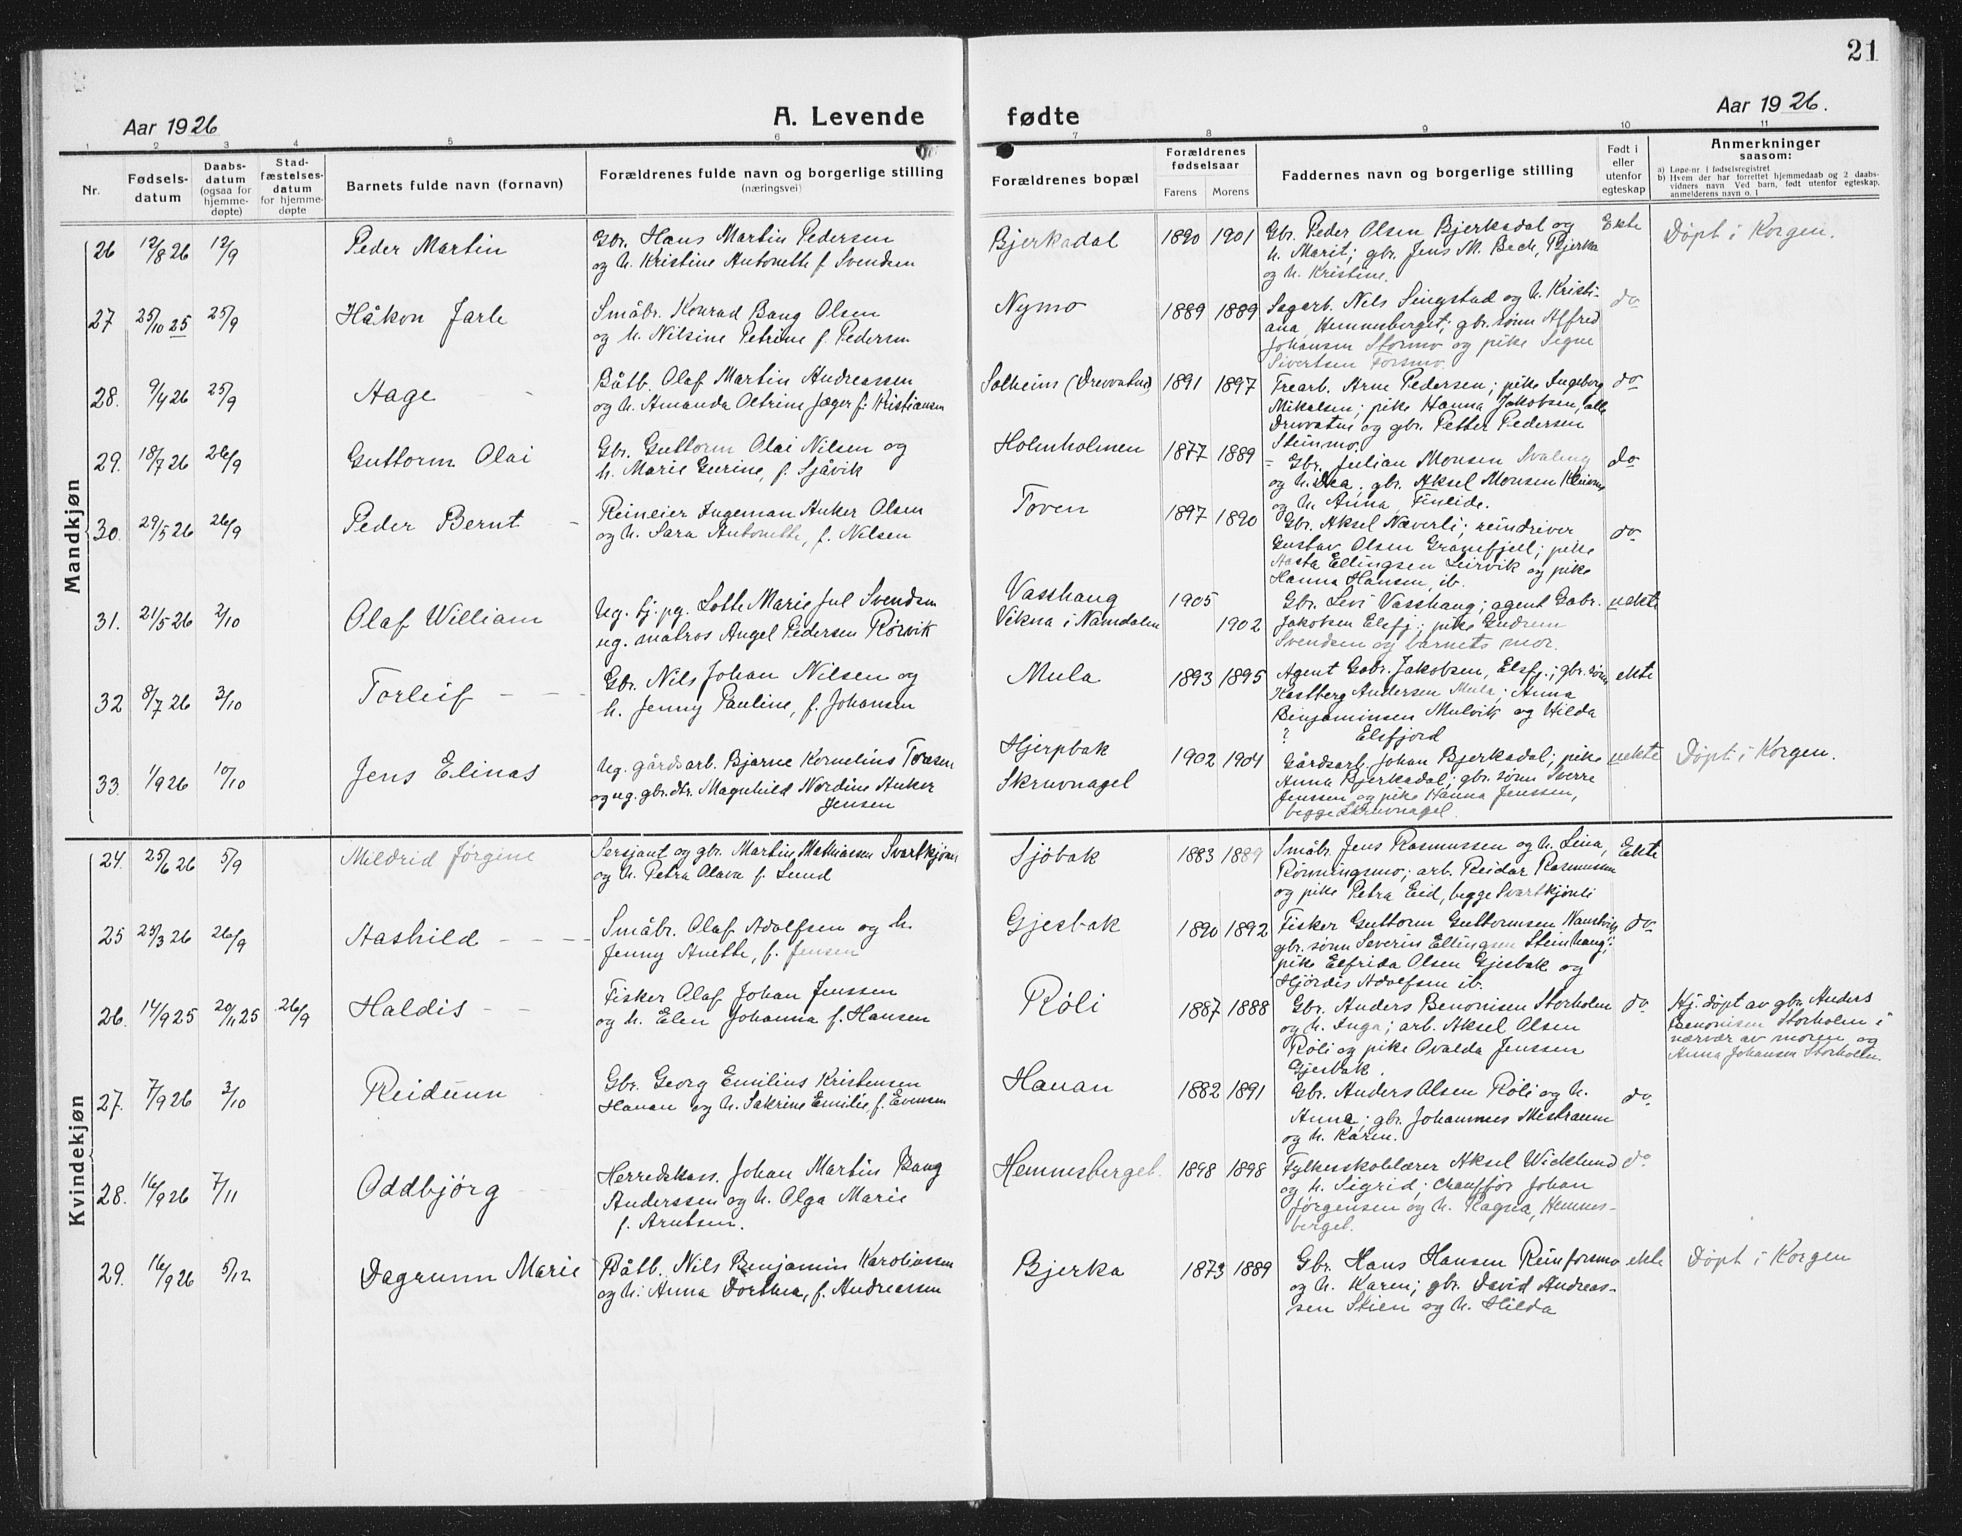 21
Aar 1926
A. Levende fødte
Aar 1926.
1 2 3 4 5 6 7 8 9 10 11
Nr.
Fødsels-
datum
Daabs-
datum
(ogsaa for
hjemme-
døpte)
Stad-
fæstelses-
datum
for hjemme-
døpte
Barnets fulde navn (fornavn)
Forældrenes fulde navn og borgerlige stilling
(næringsvei)
Forældrenes bopæl
Forældrenes
fødselsaar
Farens Morens
Faddernes navn og borgerlige stilling
Født i
eller
utenfor
egteskap
Anmerkninger
saasom:
a) Løpe-nr. i fødselsregistret
b) Hvem der har forrettet hjemmedaab og 2 daabs-
vidners navn Ved barn, født utenfor egteskap,
anmelderens navn o. l
Mandkjøn
26 12/8 26 12/9 Peder Martin
Gbr. Hans Martin Pedersen
og h. Kristine Antonette f. Svendsen
Bjerkadal 1890 1901
Gbr. Peder Olsen Bjerkadal og
h. Marit; gbr. Jens M. Bech, Bjerka
og h. Kristine.
Ekte
Døpt i Korgen.
27 25/10 25 25/9 Håkon Jarle
Småbr. Konrad Bang Olsen
og h. Nilsine Petrine f. Pedersen
Nymo 1889 1889
Sagarb. Nils Singstad og h. Kristi-
ana, Hemnesberget; gbr. sønn Alfred
Johansen Stormo og pike Signe
Sivertsen Forsmo.
do
28. 9/4 26 25/9 Aage
Båtb. Olaf Martin Andreassen
og h. Amanda Oltrine Jæger f. Kristiansen
Solheim (Drevvatne) 1891 1897
Trearb. Arne Pedersen; pike Ingeborg
Mikalsen; pike Hanna Jakobsen, alle
Drevvatn og gbr. Petter Pedersen
Steinmo.
do
29. 18/7 26 26/9 Guttorm Olai
Gbr. Guttorm Olai Nilsen og
h. Marie Gurine, f. Sjåvik
Holmholmen 1877 1889
= Gbr. Julian Monsen Svaling
og h. Dea; gbr. Aksel Monsen
og h. Anna, Fineide.
do
30. 29/5 26 26/9 Peder Bernt
Reineier Ingeman Anker Olsen
og h. Sara Antonette, f. Nilsen
Toven 1897 1890
Gbr. Aksel Næverli; reindriver
Gustav Olsen Granefjell; pike
Aasta Ellingsen Leirvik og pike
Hanna Hansen, ib.
do
31. 21/5 26 2/10 Olaf William
Ug. tj. pg. Lotte Marie Jul Svendsen
ug. matros Angel Pedersen Rørvik
Vasshaug 1905
Vikna i Namdalen 1902
Gbr. Levi Vasshaug; agent Gabr.
Jakobsen Elsfj.; pike Gudrun
Svendsen og barnets mor.
uekte
32 8/7 26 3/10 Torleif
Gbr. Nils Johan Nilsen og
h. Jenny Pauline, f. Johansen
Mula 1893 1895
Agent Gabr. Jakobsen, Elsfj.; gbr. sønn
Kastberg Andersen Mula; Anna
Benjaminsen Mulvik og Hilda
? Elsfjord
ekte
33. 1/9 26 10/10 Jens Elinas
Ug. gårdsarb. Bjarne Kornelius Toresen
og ug. gbr. dtr. Magnhild Nordine Anker
Jensen
Hjerpbak 1902 1904
Skruvnagel
Gårdsarb. Johan Bjerkadal; pike
Anna Bjerkadal; gbr. sønn Sverre
Jenssen og pike Hanna Jenssen,
begge Skruvnagel.
uekte
Døpt i Korgen.
Kvindekjøn
24. 25/6 26 5/9 Mildrid Jørgine
Sersjant og gbr. Martin Mathiassen Svartkjønn
og h. Petra Olava f. Lund
Sjøbak 1883 1889
Småbr. Jens Rasmussen og h. Lina,
Rønningsmo; arb. Reidar Rasmussen
og pike Petra Eid, begge Svartkjønli
Ekte
25 25/3 26 26/9 Aashild
Småbr. Olaf Adolfsen og h.
Jenny Anette, f. Jensen
Gjesbak 1890 1892
Fisker Guttorm Guttormsen Namtvik;
gbr. sønn Severin Ellingsen Steinhaug;
pike Elfrida Olsen Gjesbak og
Hjørdis Adolfsen ib.
do
26. 14/9 25 20/11 25 26/9 Haldis
Fisker Olaf Johan Jenssen
og h. Elen Johanna f. Hansen
Røli 1887 1888
Gbr. Anders Benonisen Storholm
og h. Inga; arb. Aksel Olsen
Røli og pike Ovalda Jenssen
Gjesbak.
do
Hj. døpt av gbr. Anders
Benonisen Storholm i
nærvær av moren og
Anna Johansen Storholm.
27. 7/9 26 3/10 Reidunn
Gbr. Georg Emilius Kristensen
Hauan og h. Sakrine Emilie f. Evensen
Hauan 1882 1891
Gbr. Anders Olsen Røli og h.
Anna; gbr. Johannes Mistraum
og h. Karen.
do
28. 16/9 26 7/11 Oddbjørg
Herredskass. Johan Martin Bang
Anderssen og h. Olga Marie
f. Arntsen.
Hemnesberget. 1898 1898
Fylkesskolelærer Aksel Wicklund
og h. Sigrid; chauffør Johan
Jørgensen og h. Ragna, Hemnes-
berget.
do
29. 16/9 26 5/12 Dagrunn Marie
Båtb. Nils Benjamin Karoliussen
og h. Anna Dorthea, f. Andreassen
Bjerka 1873 1889
Gbr. Hans Hansen Reinforsmo
og h. Karen; gbr. David Andreas-
sen Stien og h. Hilda
ekte
Døpt i Korgen